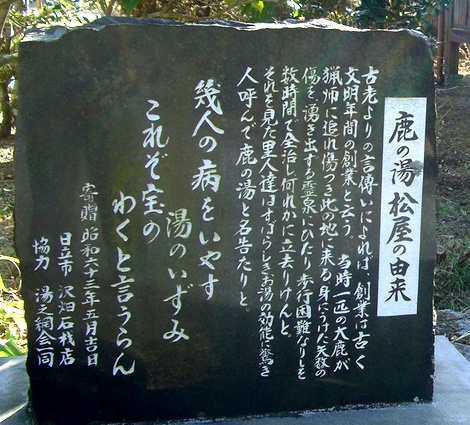 鹿の湯松屋の由来
古老よりの言傳いによれば、創業は古く
文明年間の創業と云う。当時一匹の大鹿が
猟師に追れ傷つき此の地に来る。身にうけた矢数の
傷を湧き出ずる霊泉にひたり、歩行困難なりしを
数時間で全治し何れかに立去りけんと。
それを見た里人達はすばらしきお湯の効能に驚き
人呼んで鹿の湯と名告たりと。
幾人の病をいやす
湯のいずみ
これぞ宝の
わくと言うらん
寄贈 昭和六十三年五月吉日
日立市 沢畑石材店
協力 湯之網会一同